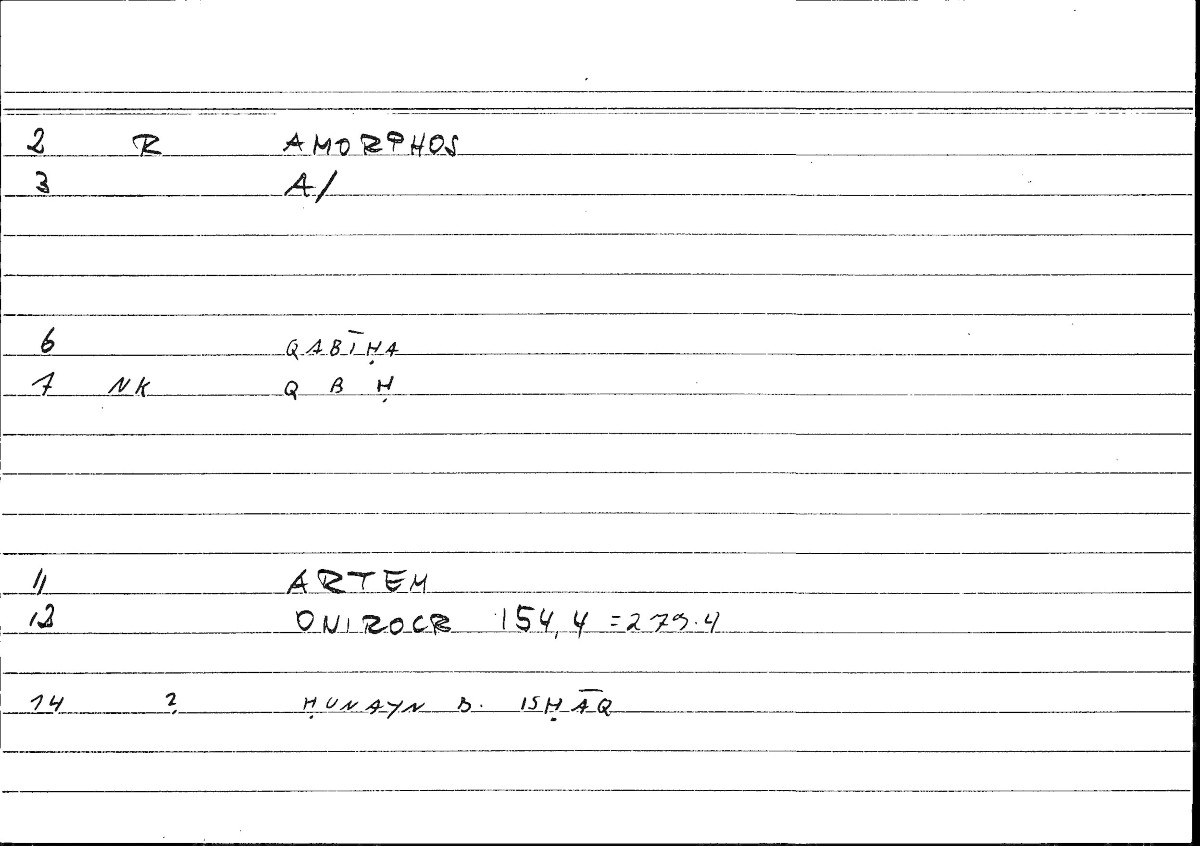 2 R AMORPHOS
3 A/
6 QABĪḤA
7 NK Q B Ḥ
11 ARTEM
12 ONIROCR 154,4 =279.4
14 ? ḤUNAYN B. ISḤĀQ